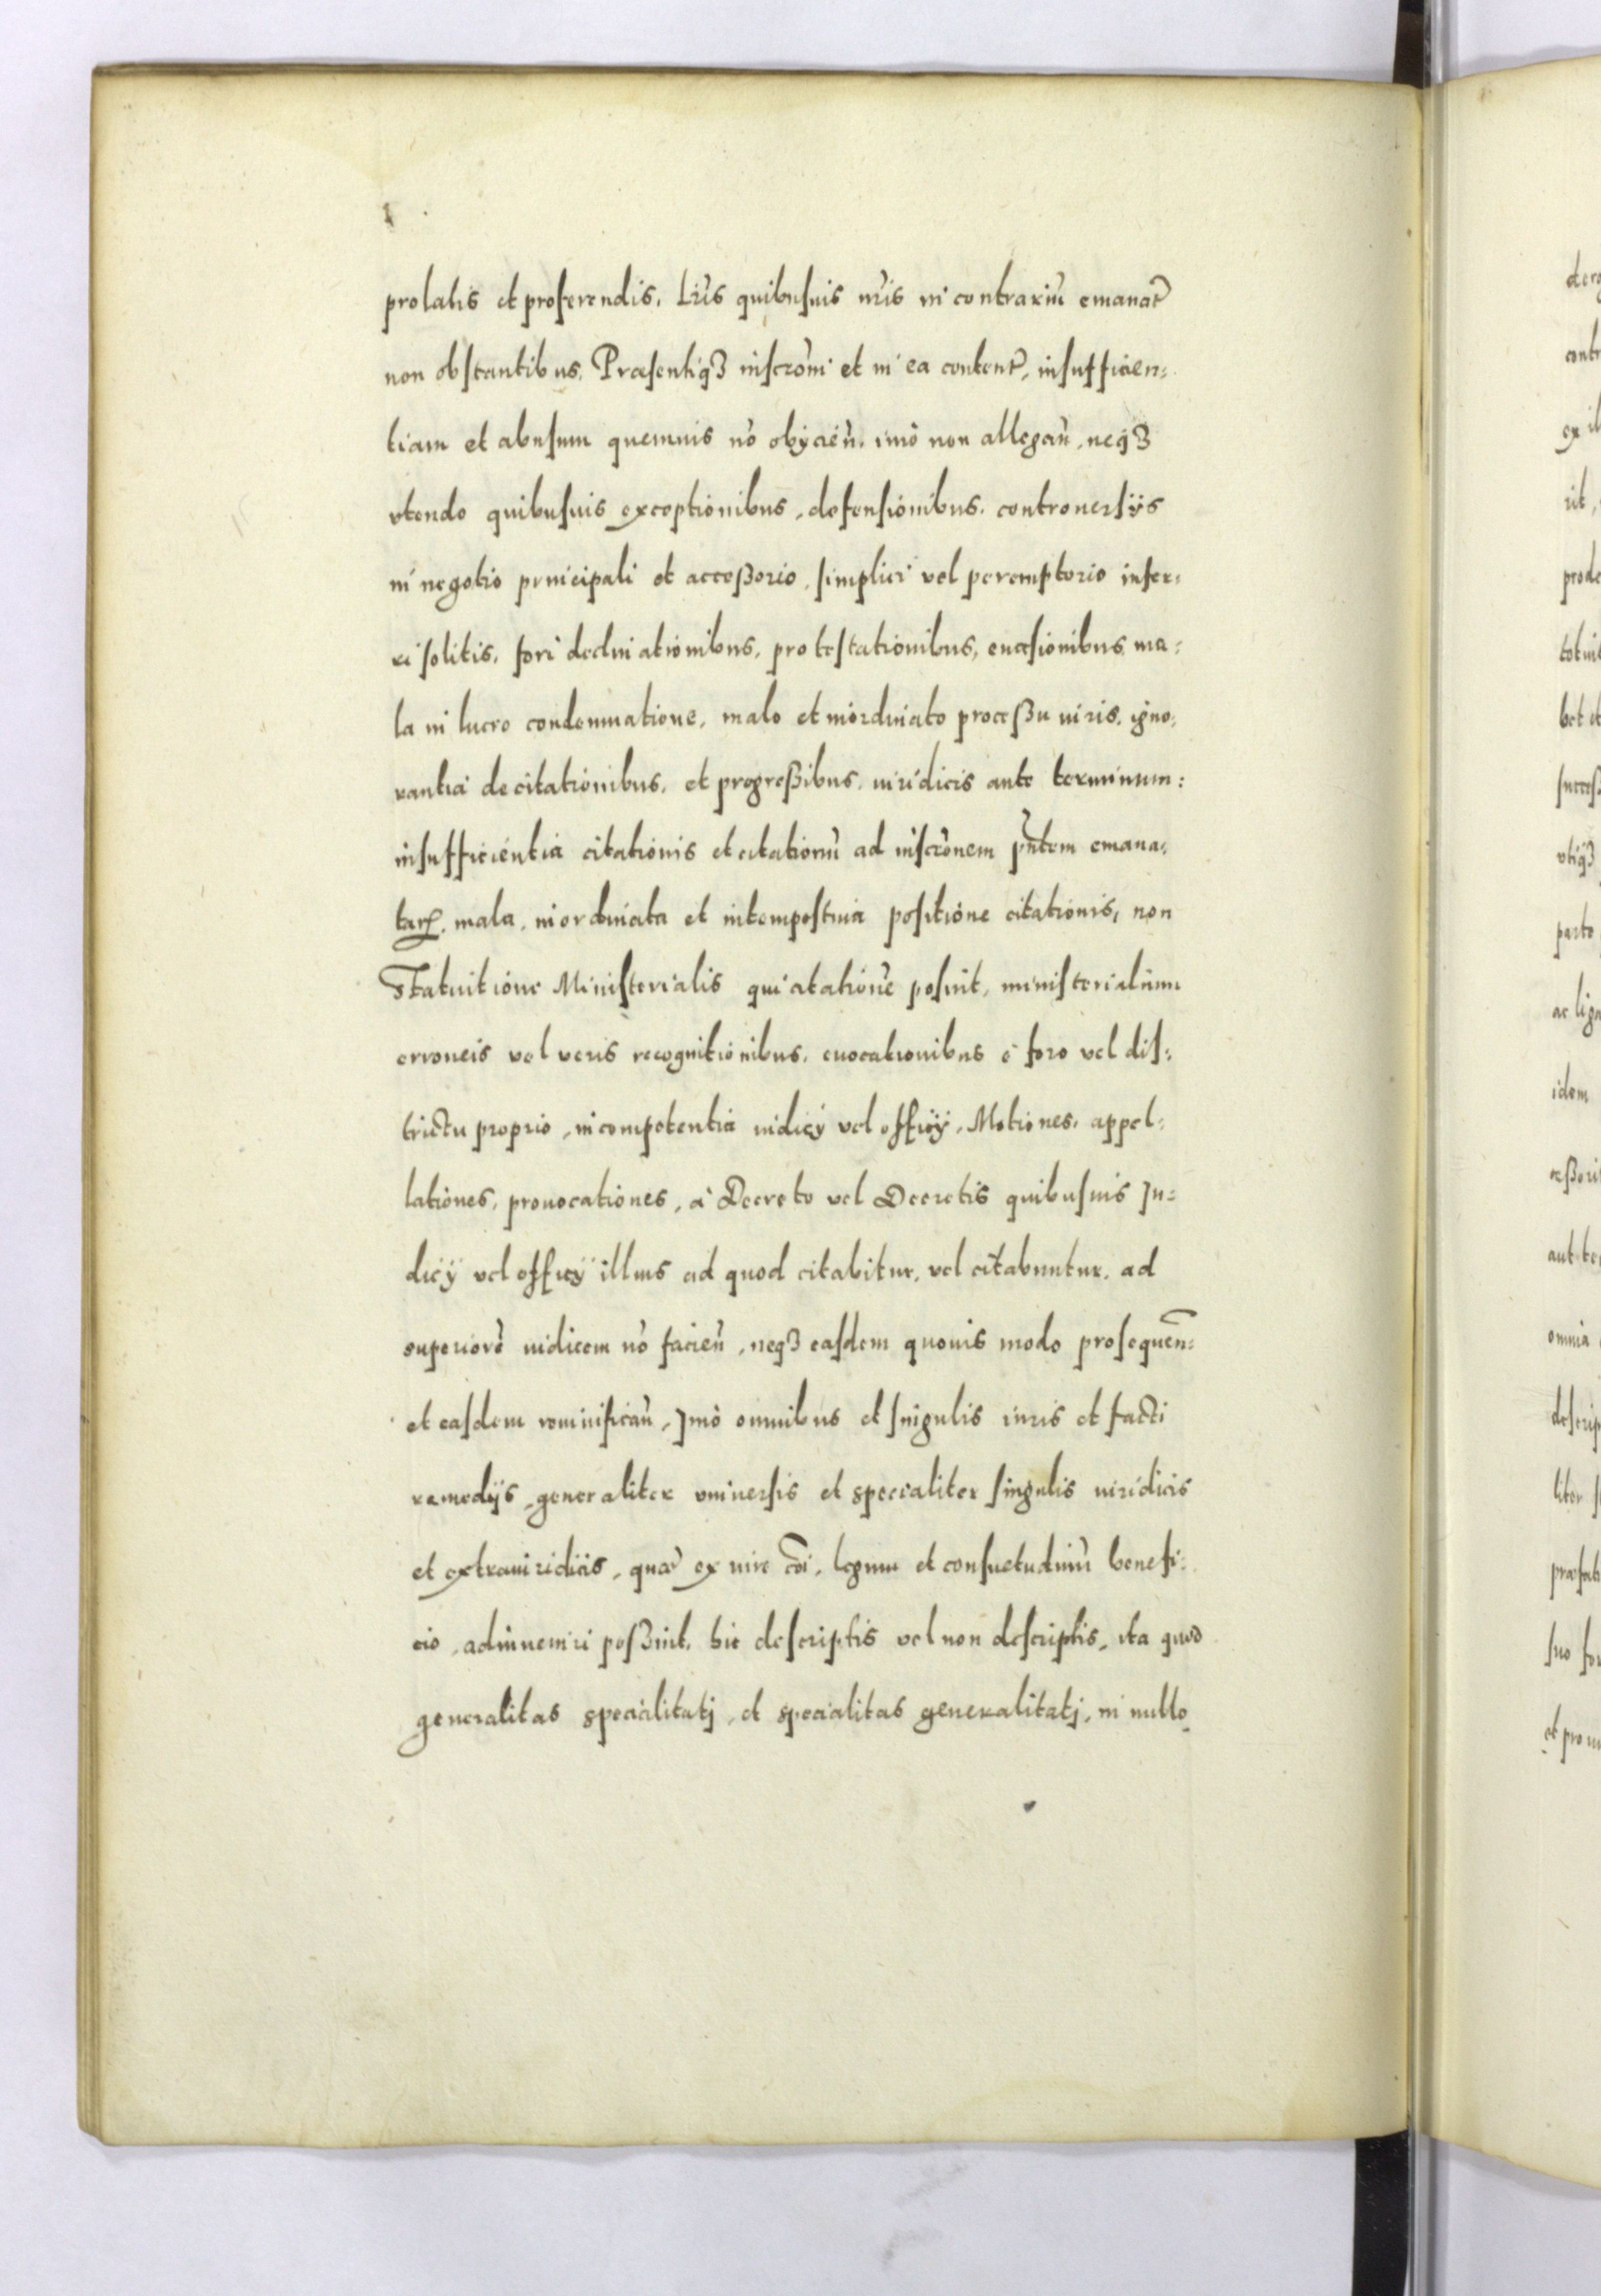 prolatis et proferendis, Lr̃is quibusuis nr̃is in contrariũ emanat̃
non obstantibus. Præsentiq3 inscrõni et in ea content̃, insufficien=
tiam et abusum quemuis nõ obijcieñ. imò non allegañ, neq3
vtendo quibusuis exceptionibus, defensionibus, controuersijs
in negotio principali et acceßorio, simplici vel peremptorio infer=
ri solitis, fori declinationibus, protestationibus, euasionibus ma=
la in lucro condemnatione, malo et inordinato proceßu iuris, igno=
rantia de citationibus, et progreßibus, iuridicis ante terminum:
insufficientia citationis et citationũ ad inscrõnem pñtem emana=
tarũ, mala, inordinata et intempestiua positione citationis, non
Statuitione Ministerialis qui citationẽ posuit, ministerialium
erroneis vel veris recognitionibus, euocationibus è foro vel dis=
trictu proprio, incompetentia iudicij vel officij, Motiones, appel=
lationes, prouocationes, à Decreto vel Decretis quibusuis Ju=
dicij vel officij illius ad quod citabitur, vel citabuntur, ad
superiorẽ iudicem nõ facieñ, neq3 easdem quouis modo prosequeñ=
et easdem nominificañ, Jmò omnibus et singulis iuris et facti
remedijs, generaliter vniuersis et specialiter singulis iuridicis
et extraiuridicis, quæ ex iure cõi, legum et consuetudinũ benefi=
cio, adinueniri poßint, hic descriptis vel non descriptis, ita quod
generalitas specialitatj, et specialitas generalitatj, in nullo